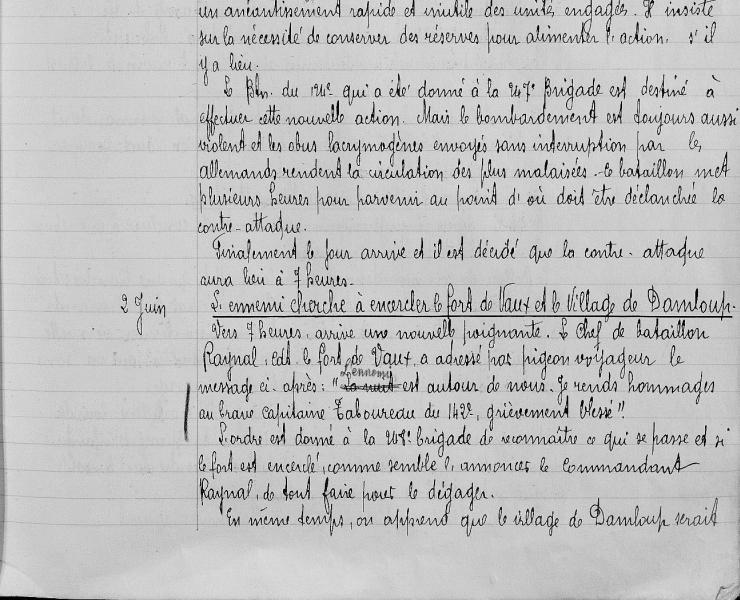 un anéantissement rapide et inutile des unités engagés. Il insiste
sur la nécessité de conserver des réserves pour alimenter l'action, s'il
y a lieu.
Le Btn. du 124e qui a été donné à la 247e Brigade est destiné à
effectuer cette nouvelle action. Mais le bombardement est toujours aussi
violent et les obus lacrymogènes envoyés sans interruption par les
allemands rendent la circulation des plus malaisées. Ce bataillon met
plusieurs heures pour parvenir au point d'où doit être déclanchée la
contre-attaque.
Finalement le jour arrive et il est décidé que la contre-attaque
aura lieu à 7 heures.
2 Juin
L'ennemi cherche à encercler le fort de Vaux et le Village de Damloup.
Vers 7 heures, arrive une nouvelle poignante. Le Chef de bataillon
Raynal, cdt. le fort de Vaux, a adressé par pigeon voyageur le
L'ennemi
message ci-après: "La nuit est autour de nous. Je rends hommages
au brave capitaine Taboureau du 142e, grièvement blessé".
L'ordre est donné à la brigade de reconnaître ce qui se passe et si
le fort est encerclé, comme semble l'annoncer le Commandant
Raynal, de tout faire pour le dégager.
En même temps, on apprend que le village de Damloup serait